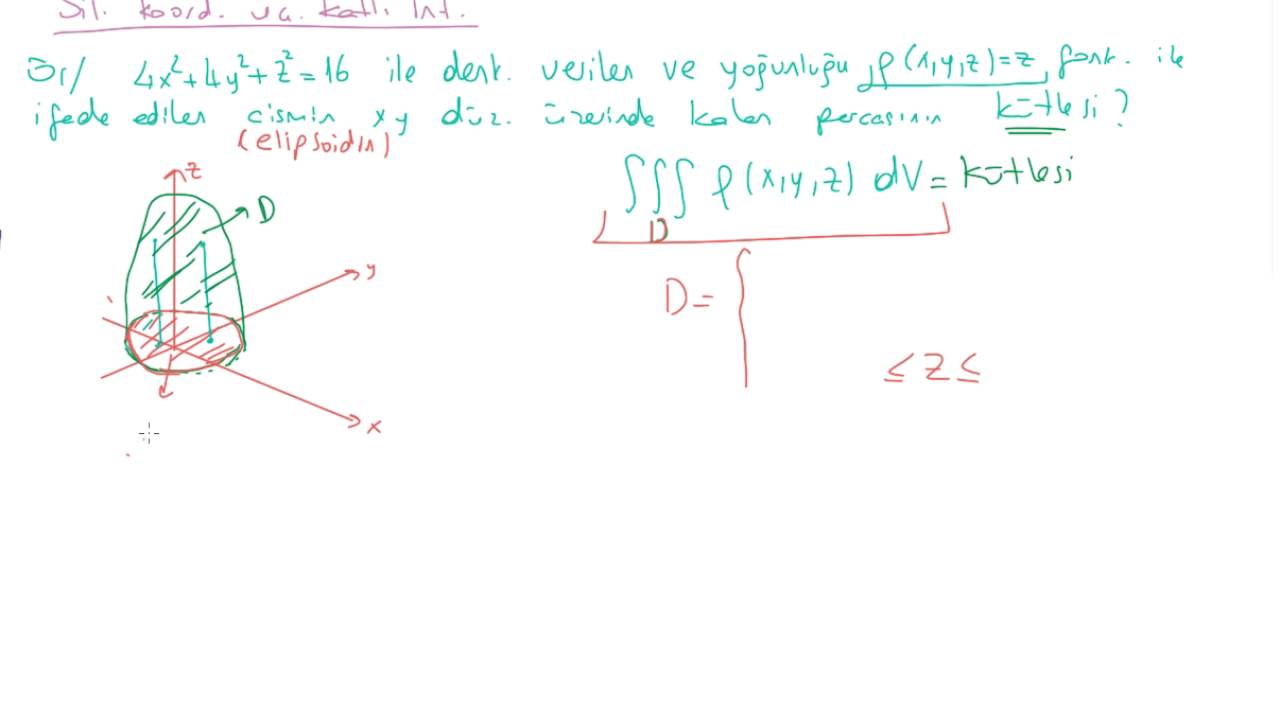 Sil. Koord. Üç Katlı İnt.
Ör/ 4x²+4y²+z²=16 ile denk. verilen ve yoğunluğu ρ(x,y,z)=z fonk. ile
ifade edilen cismin xy düz. üzerinde kalan parçasının kütlesi?
(elipsoidin)
z
D
y
x
∫∫∫ ρ(x,y,z) dV = kütlesi
D
D= {
≤ z ≤